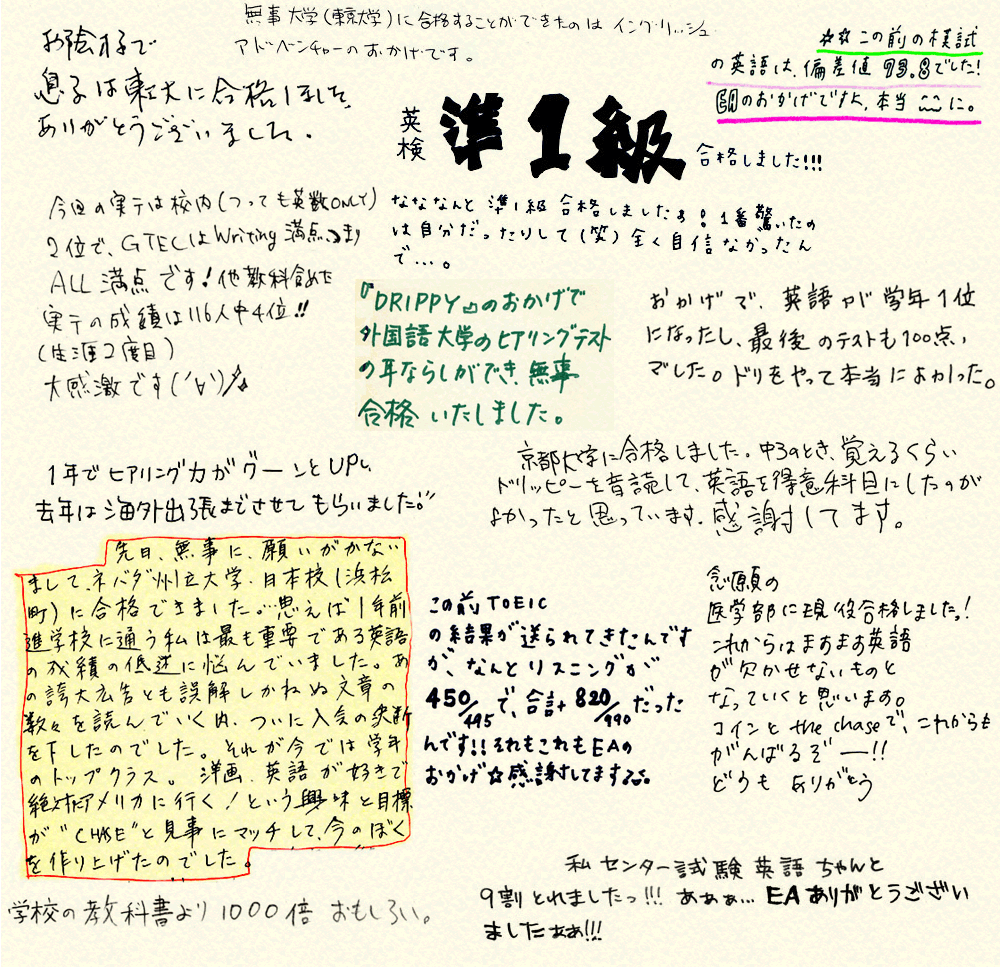 無事大学(東京大学)に合格することができたのはイングリッシュ
アドベンチャーのおかげです。
お陰様で
息子は東大に合格しました。
ありがとうございました。
☆☆この前の模試
の英語は、偏差値 93.8でした!
EAのおかげですよ、本当〜〜に。
英検 準1級 合格しました!!!
なななんと準1級合格しましたョ!1番驚いたの
は自分だったりして(笑)全く自信なかったん
で…。
今回の実テは校内(つっても英数ONLY)
2位で、GTECはWriting満点、つまり
ALL 満点です!他教科含めた
実テの成績は116人中4位!!
(生涯2度目)
大感激です(´∀`)ノ
『DRIPPY』のおかげで
外国語大学のヒアリングテスト
の耳ならしができ、無事
合格いたしました。
おかげで、英語が学年1位
になったし、最後のテストも100点
でした。ドリをやって本当によかった。
1年でヒアリング力がグーンとUPし
去年は海外出張までさせてもらいました!!
京都大学に合格しました。中3のとき、覚えるくらい
ドリッピーを音読して、英語を得意科目にしたのが
よかったと思っています。感謝してます。
先日、無事に、願いがかない
まして、ネバダ州立大学・日本校(浜松
町)に合格できました。…思えば1年前
進学校に通う私は最も重要である英語
の成績の低迷に悩んでいました。あ
の誇大広告とも誤解しかねぬ文章の
数々を読んでいく内、ついに入会の決断
を下したのでした。それが今では学年
のトップクラス。洋画、英語が好きで
絶対アメリカに行く!という興味と目標
が"CHASE"と見事にマッチして、今のぼく
を作り上げたのでした。
この前TOEIC
の結果が送られてきたんです
が、なんとリスニングが
450/495で、合計820/990だった
んです!!それもこれもEAの
おかげ☆感謝してますっ。
念願の
医学部に現役合格しました!
これからはますます英語
が欠かせないものと
なっていくと思います。
コインとthe chaseで、これからも
がんばるぞー!!
どうも ありがとう
私センター試験英語ちゃんと
9割とれましたっ!!! あぁぁ…EAありがとうござい
ましたぁぁ!!!
学校の教科書より1000倍おもしろい。